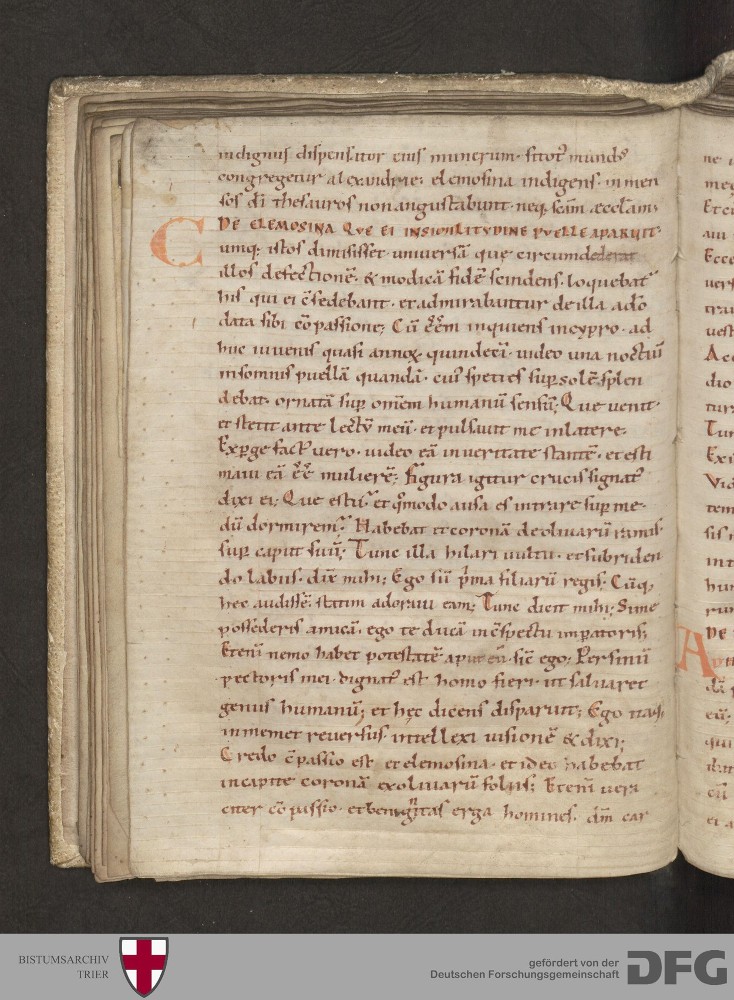 indignus dispensator eius munerum. si tot᷒ mundꝰ
congregetur alexandrie. elemosina indigens. inmen
sos dī thesauros non angustabunt. neq; scām æcclam;
DE ELEMOSINA QVE EI INSIMILITVDINE PVELLE APARUIT.
Cumq; istos dimisisset. universā que circumdederat
illos defectionē. & modicā fidē scindens. loquebat᷒
his qui ei c̄sedebant. et admirabantur de illa a dō
data sibi cōpassione; Cū eēm inquiens in cypro. ad
huc iuvenis quasi annoꝝ quindecī. video una noctiū
in somnis puellā quandā. cuiꝰ speties sup solē splen
debat. ornatā sup omnem humanū sensū; Que venit.
et stetit ante lectū meū. et pulsavit me in latere.
Expge factꝰ vero. video eā in veritate stantē. et esti
mavi eā eē mulierē; Figura igitur crucis signat᷒
dixi ei; Que es tu? et qmodo ausa es intrare sup me.
dū dormirem? Habebat et coronā de olivarū ramis.
sup caput suū; Tunc illa hilari vultu. et subriden
do labiis. dix̄ mihi; Ego sū pma filiarū regis; Cūq;
hec audissē. statim adoravi eam; Tunc dicit mihi; Si me
possederis amicā. ego te ducā in c̄spectu imperatoris;
Etenī nemo habet potestatē aput eū. sic̄ ego; Per sinū
pectoris mei. dignat᷒ est homo fieri. ut salvaret
genus humanū; et hęc dicens disparuit; Ego
in memet reversus intellexi visionē & dixi;
Credo c̄passio est et elemosina. et ideo habebat
in capite coronā ex olivarū foliis; Etenī vera
citer cōpassio. et benignitas erga homines. dm̄ car
ne
Et
Ecce
A
dio
tur
Tun
Exi
Vid
tem
sis
int
hum
DE
A
dā
eū;
qui
cū
et a
BISTUMSARCHIV
TRIER
gefördert von der
Deutschen Forschungsgemeinschaft
DFG